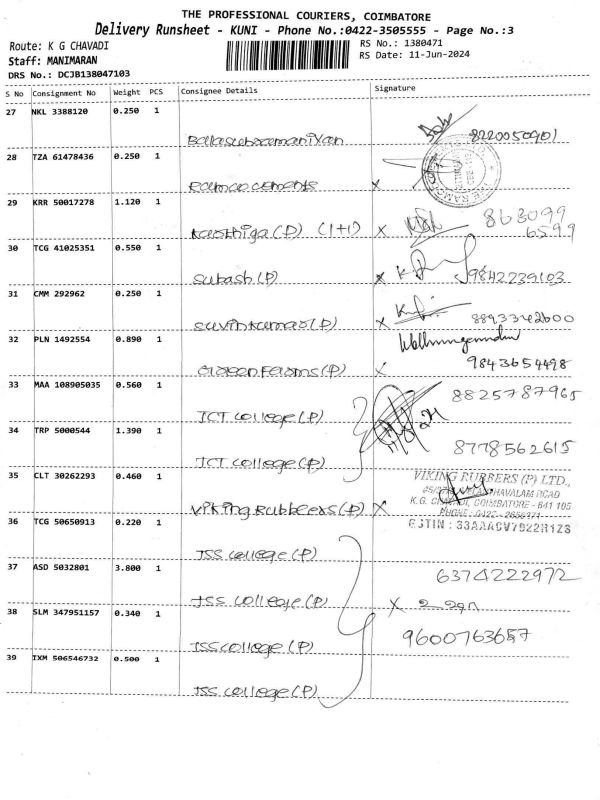 THE PROFESSIONAL COURIERS, COIMBATORE
Delivery Runsheet - KUNI - Phone No.:0422-3505555 - Page No.:3
Route: K G CHAVADI
RS No.: 1380471
Staff: MANIMARAN
RS Date: 11-Jun-2024
DRS No.: DCJB138047103
S No Consignment No Weight PCS Consignee Details Signature
27 NKL 3388120 0.250 1
Balasubramaniyan 8220050901
28 TZA 61478436 0.250 1
Ramco cements x
29 KRR 50017278 1.120 1
Kaosthiga (P) (1+1) x 863099
6599
30 TCG 41025351 0.550 1
Subash (P) x 9842239103
31 CMM 292962 0.250 1
Suvinkumar (P) x 8893342600
32 PLN 1492554 0.890 1
Green Farms (P) 9843654498
33 MAA 108905035 0.560 1
JCT college (P) 8825787965
34 TRP 5000544 1.390 1
JCT college (P) 8778562615
35 CLT 30262293 0.460 1
VIKING RUBBERS (P) LTD.,
K.G. CHAVADI, COIMBATORE - 641 105
Viking Rubbers (P) x
36 TCG 50650913 0.220 1
GSTIN : 33AAACV7922R1ZS
JSS college (P)
37 ASD 5032801 3.800 1
6374222972
JSS college (P) x
38 SLM 347951157 0.340 1
9600763657
JSS college (P)
39 IXM 506546732 0.500 1
JSS college (P)